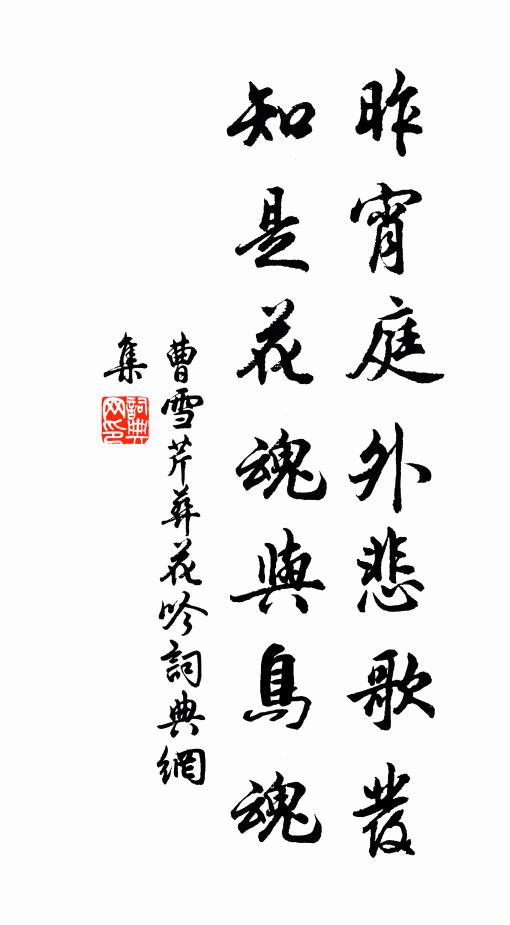 昨宵庭外悲歌發
知是花魂與鳥魂
曹雪芹葬花吟詞典網
集
詞典
网印